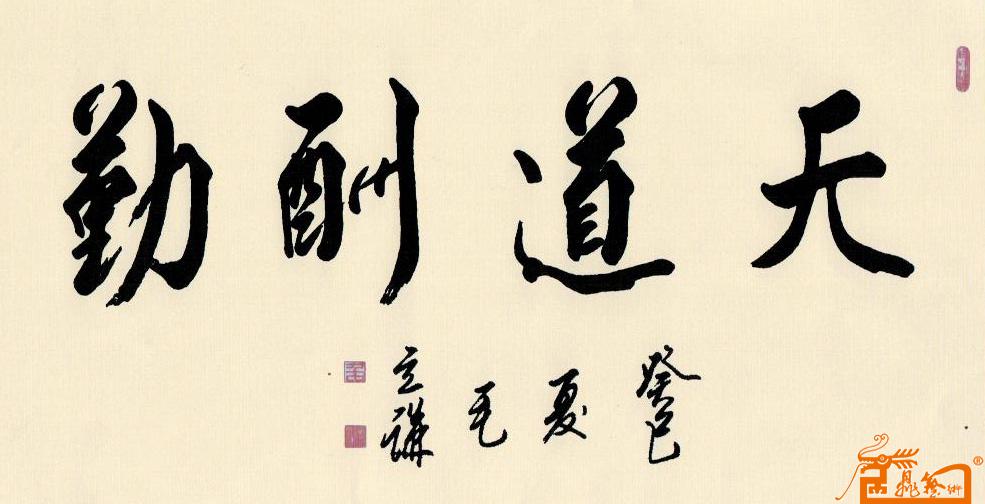 天道酬勤
癸巳夏毛立